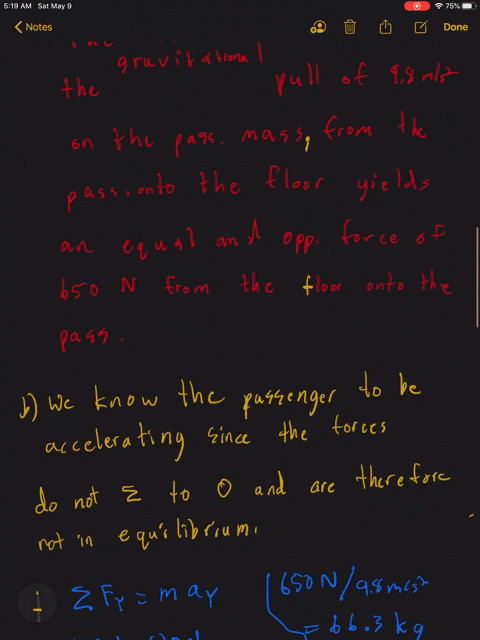 5:19 AM Sat May 9
75%
Notes
Done
gravitational
the pull of 9.8 m/s²
on the pass. mass, from the
pass. onto the floor yields
an equal and opp. force of
650 N from the floor onto the
pass.
b) We know the passenger to be
accelerating since the forces
do not Σ to 0 and are therefore
not in equilibrium.
Σ Fy = m ay
650 N/9.8 m/s²
= 66.3 kg